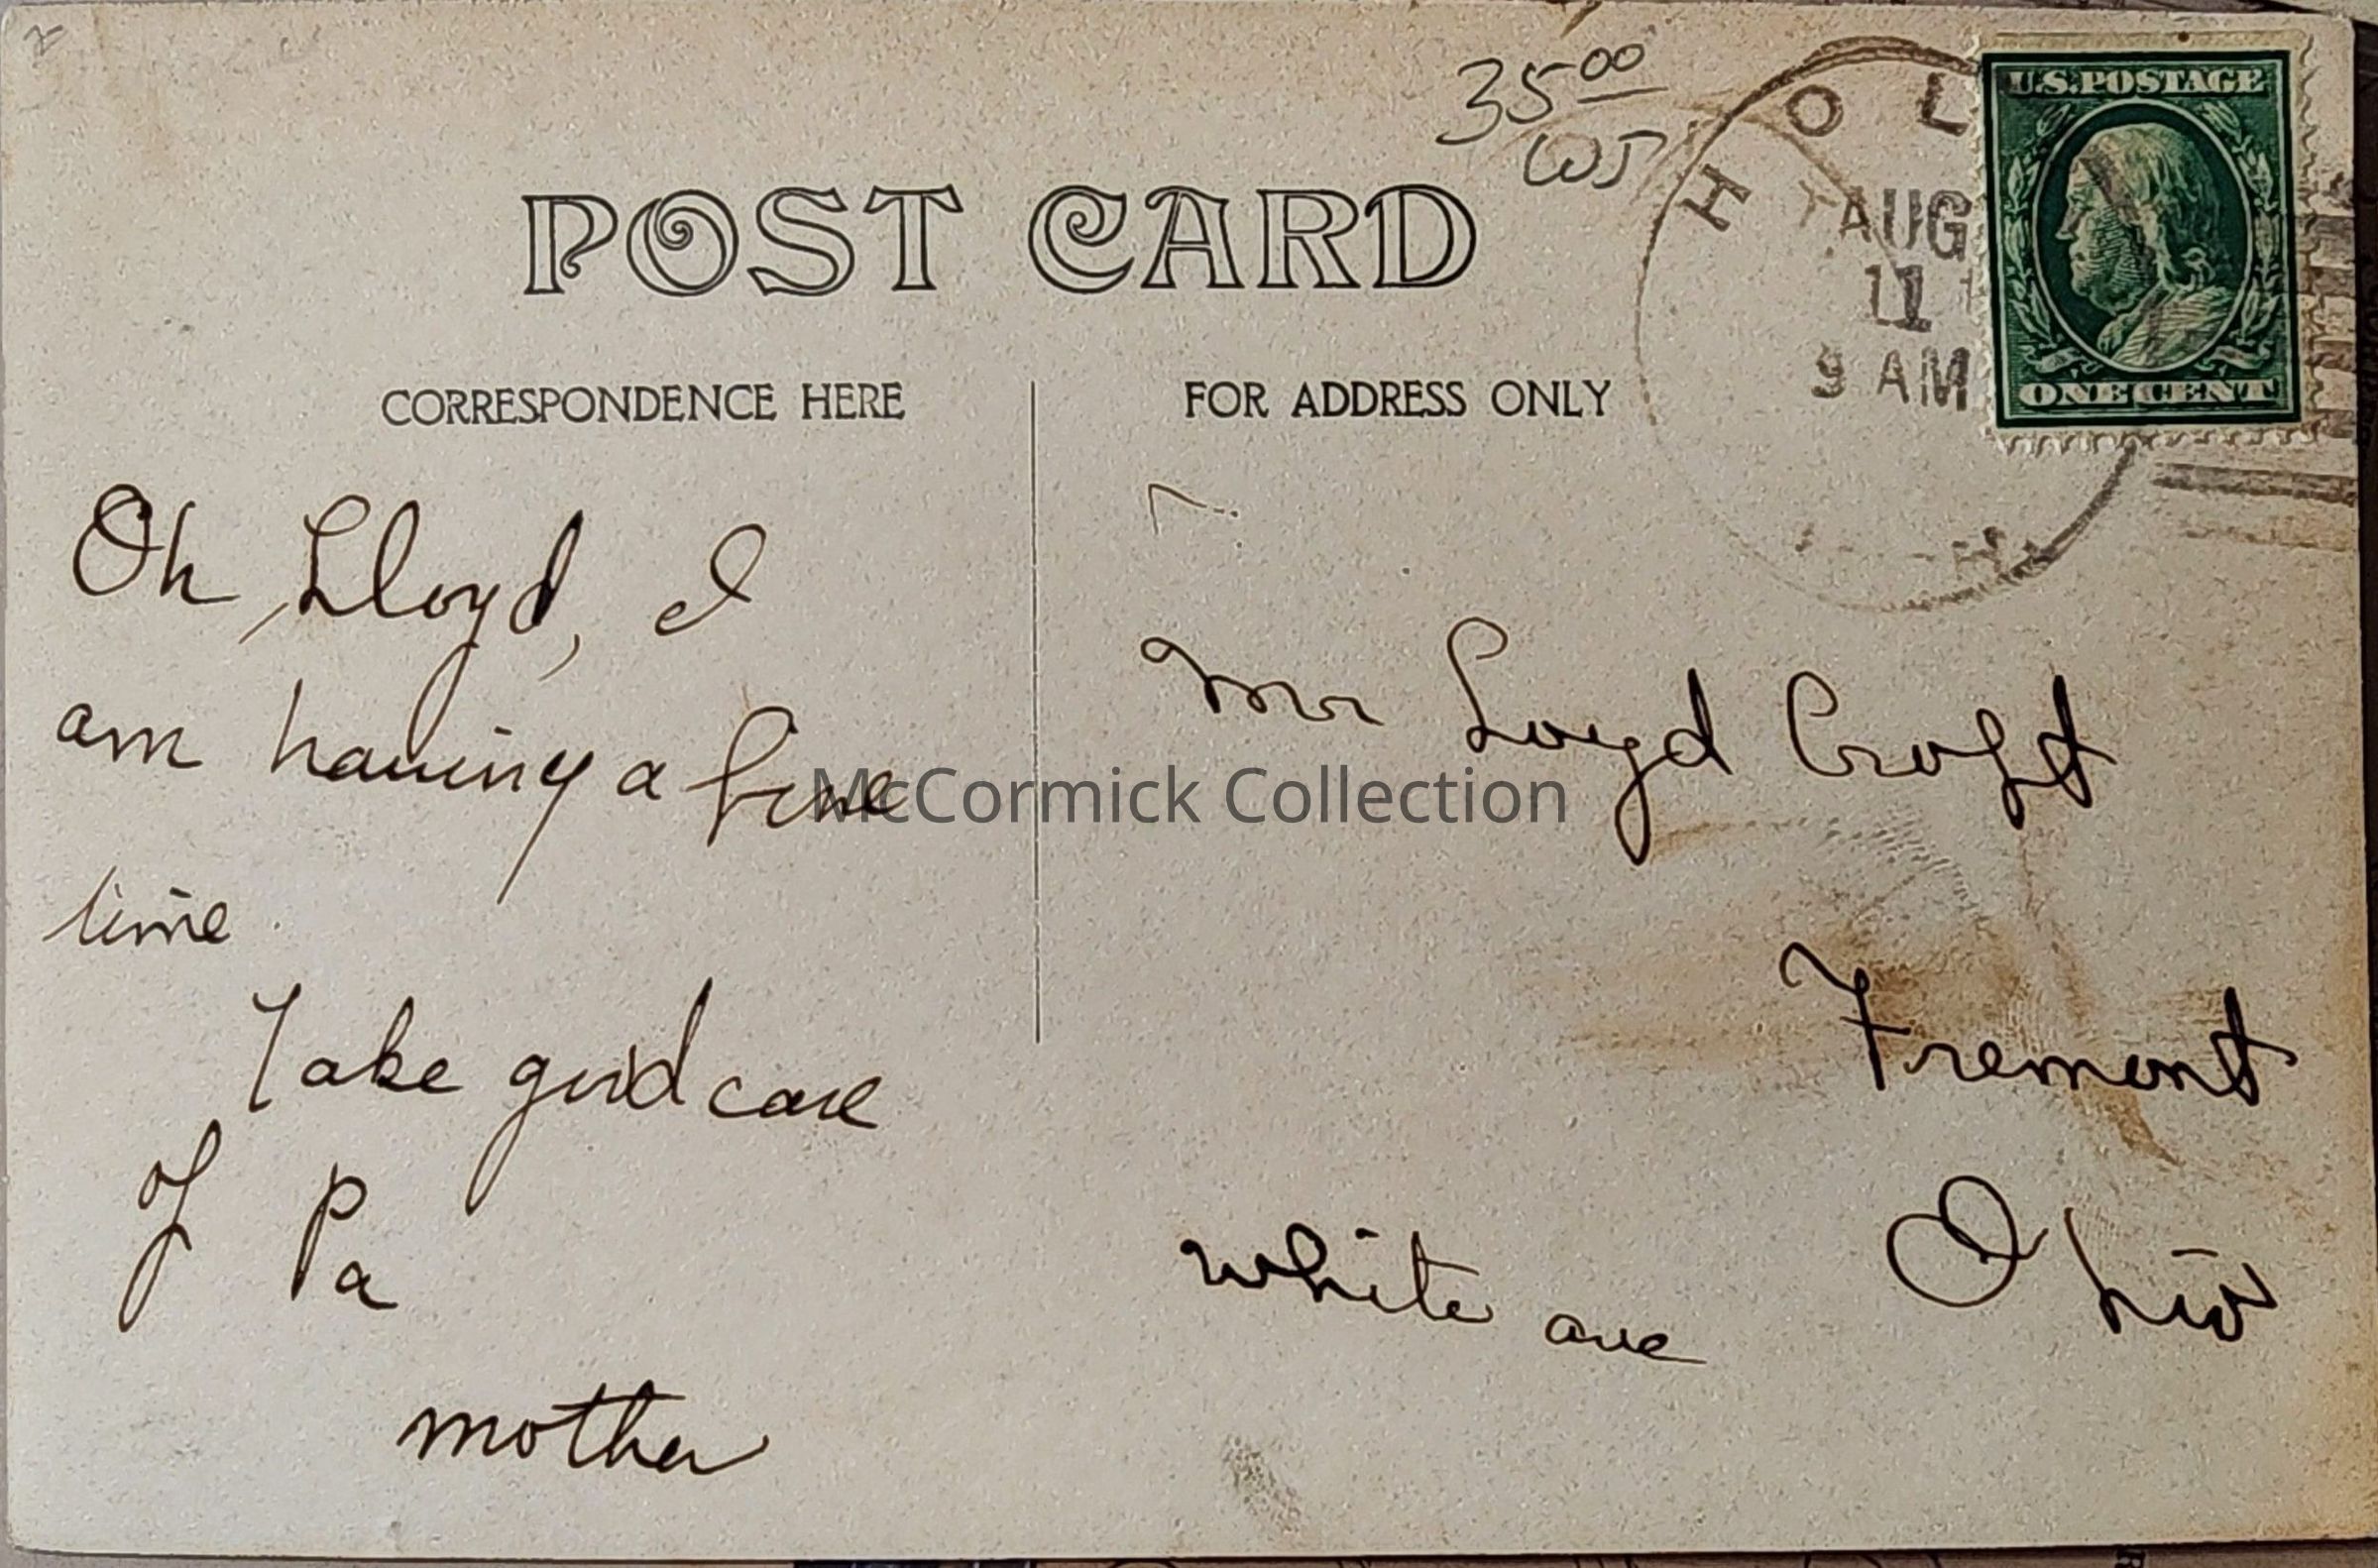 35⁰⁰
WJ
HOL
AUG
11
9 AM
U.S. POSTAGE
ONE CENT
POST CARD
CORRESPONDENCE HERE
FOR ADDRESS ONLY
Oh, Lloyd, I
am having a fine
time.
Take good care
of Pa
mother
Mr Loyd Croft
Fremont
Ohio
white ave
McCormick Collection